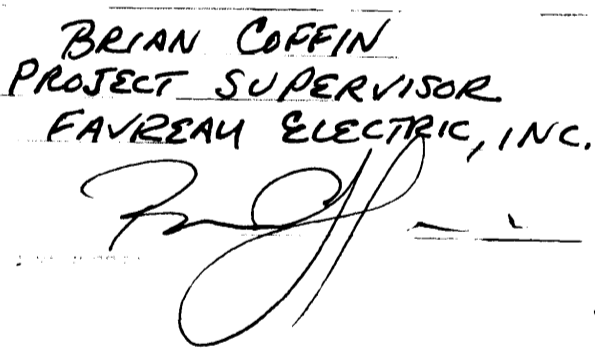 BRIAN COFFIN
PROJECT SUPERVISOR
FAVREAU ELECTRIC, INC.